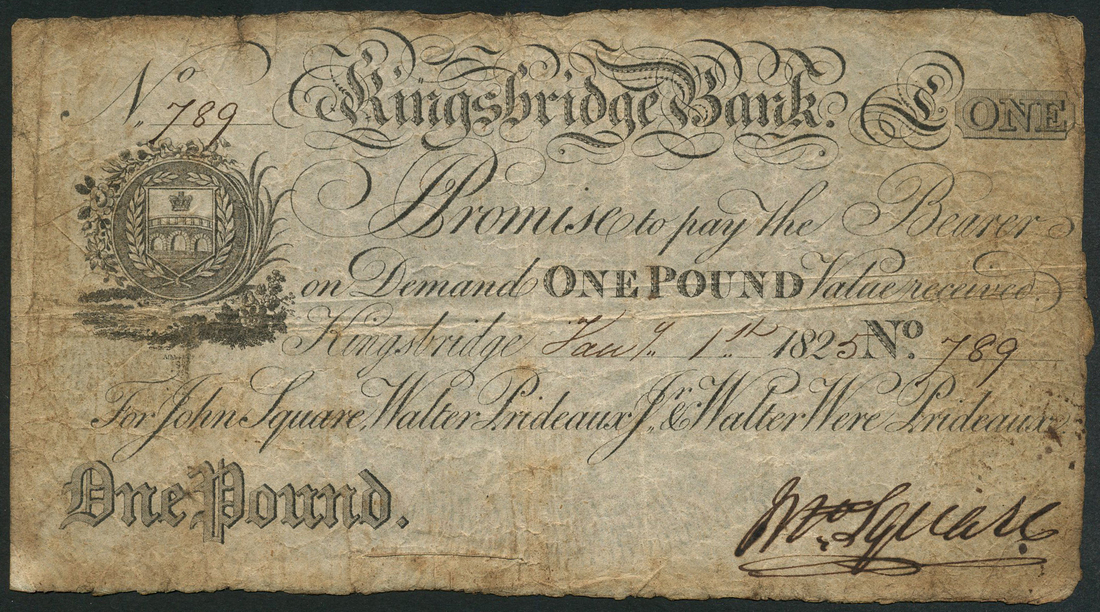 No. 789
Kingsbridge Bank. £ ONE
I Promise to pay the Bearer
on Demand ONE POUND Value received.
Kingsbridge Jany. 1st 1825 No. 789
For John Square, Walter Prideaux Jr. & Walter Were Prideaux
One Pound.
Jno. Square.